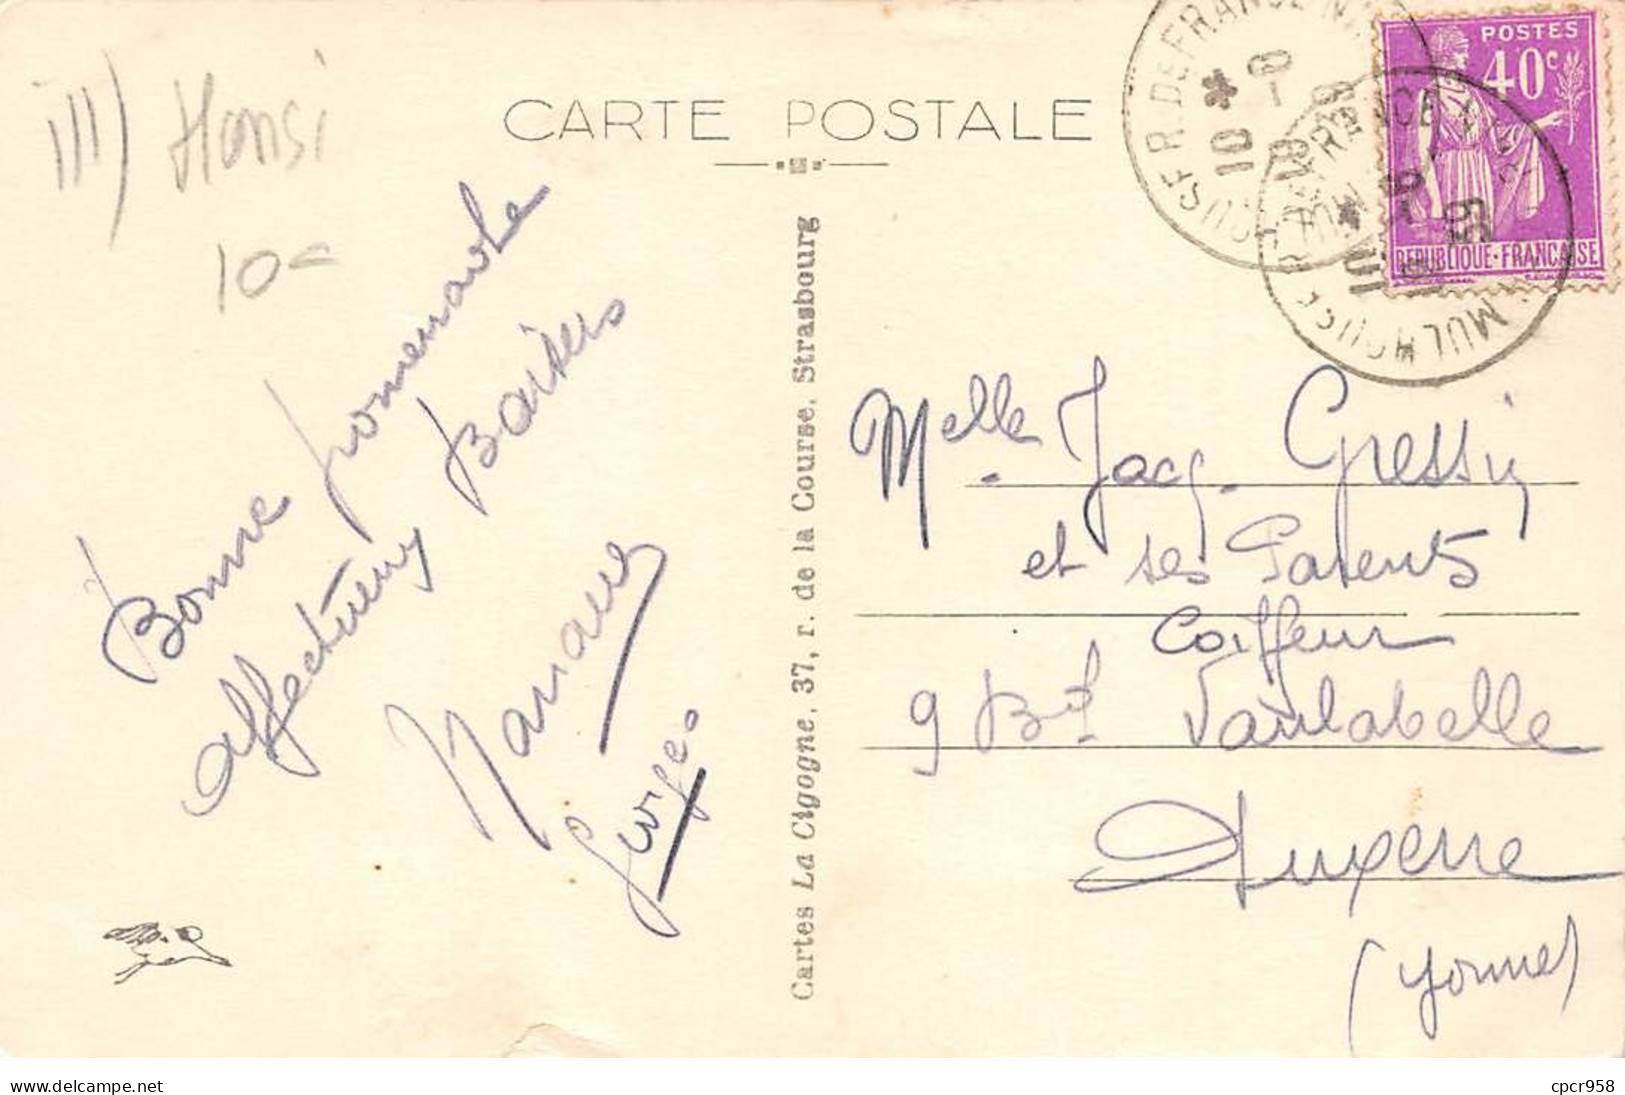 ill) Hansi
10-
CARTE POSTALE
POSTES
40c
REPUBLIQUE·FRANÇAISE
Bonne promenade
affectueux Baisers
Georges
Cartes La Cigogne, 37, r. de la Course, Strasbourg
Melle Jacq. Gressin
et ses Parents
Coiffeur
9 Bd Vaulabelle
Auxerre
(Yonne)
cpcr958